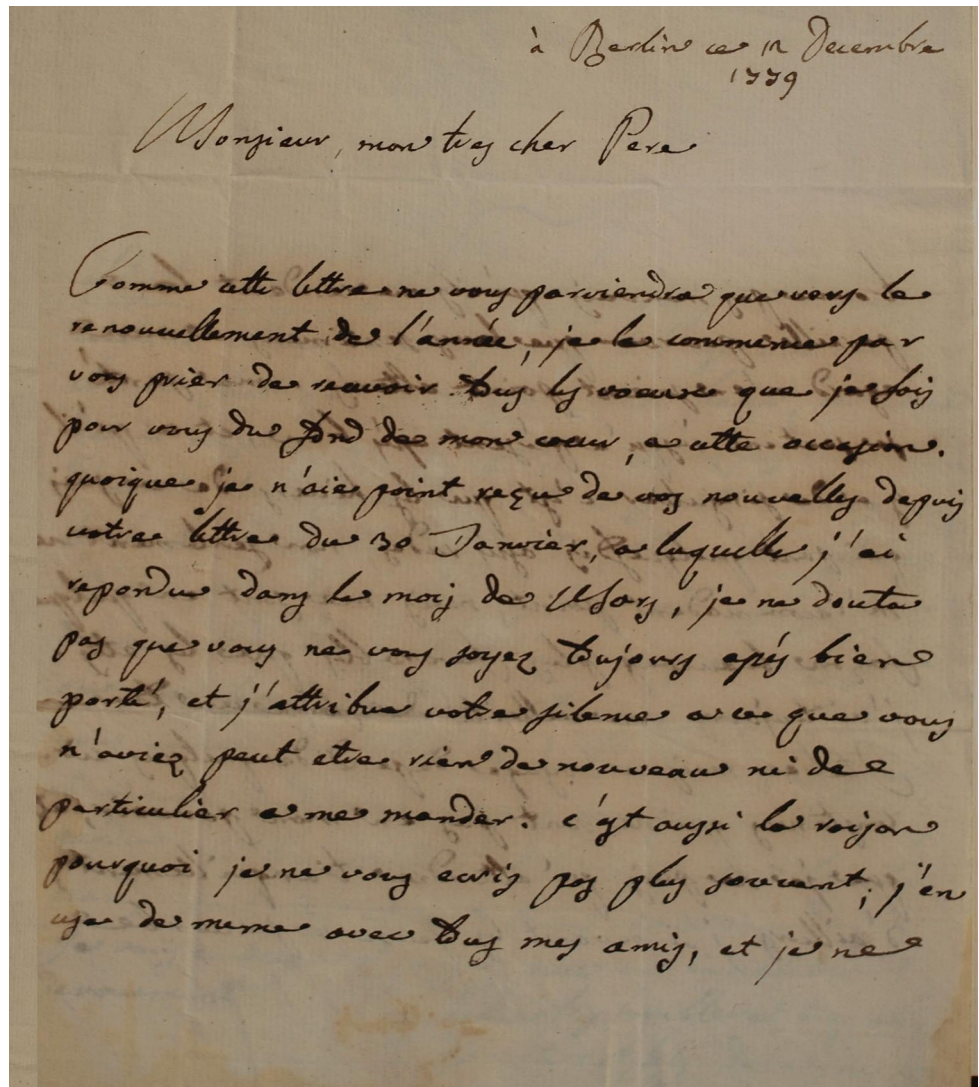 à Berlin ce 12 Decembre
1779
Monsieur, mon tres cher Pere
Comme cette lettre ne vous parviendra que vers le
renouvellement de l'année, je la commence par
vous prier de recevoir tous les voeux que je fais
pour vous du fond de mon coeur, a cette occasion.
quoique je n'aie point reçu de vos nouvelles depuis
votre lettre du 30 Janvier, a laquelle j'ai
repondu dans le mois de Mars, je ne doute
pas que vous ne vous soyez toujours bien
porté, et j'attribue votre silence a ce que vous
n'aviez peut etre rien de nouveau ni de
particulier a me mander. c'est aussi la raison
pourquoi je ne vous ecris pas plus souvent; j'en
use de meme avec tous mes amis, et je ne